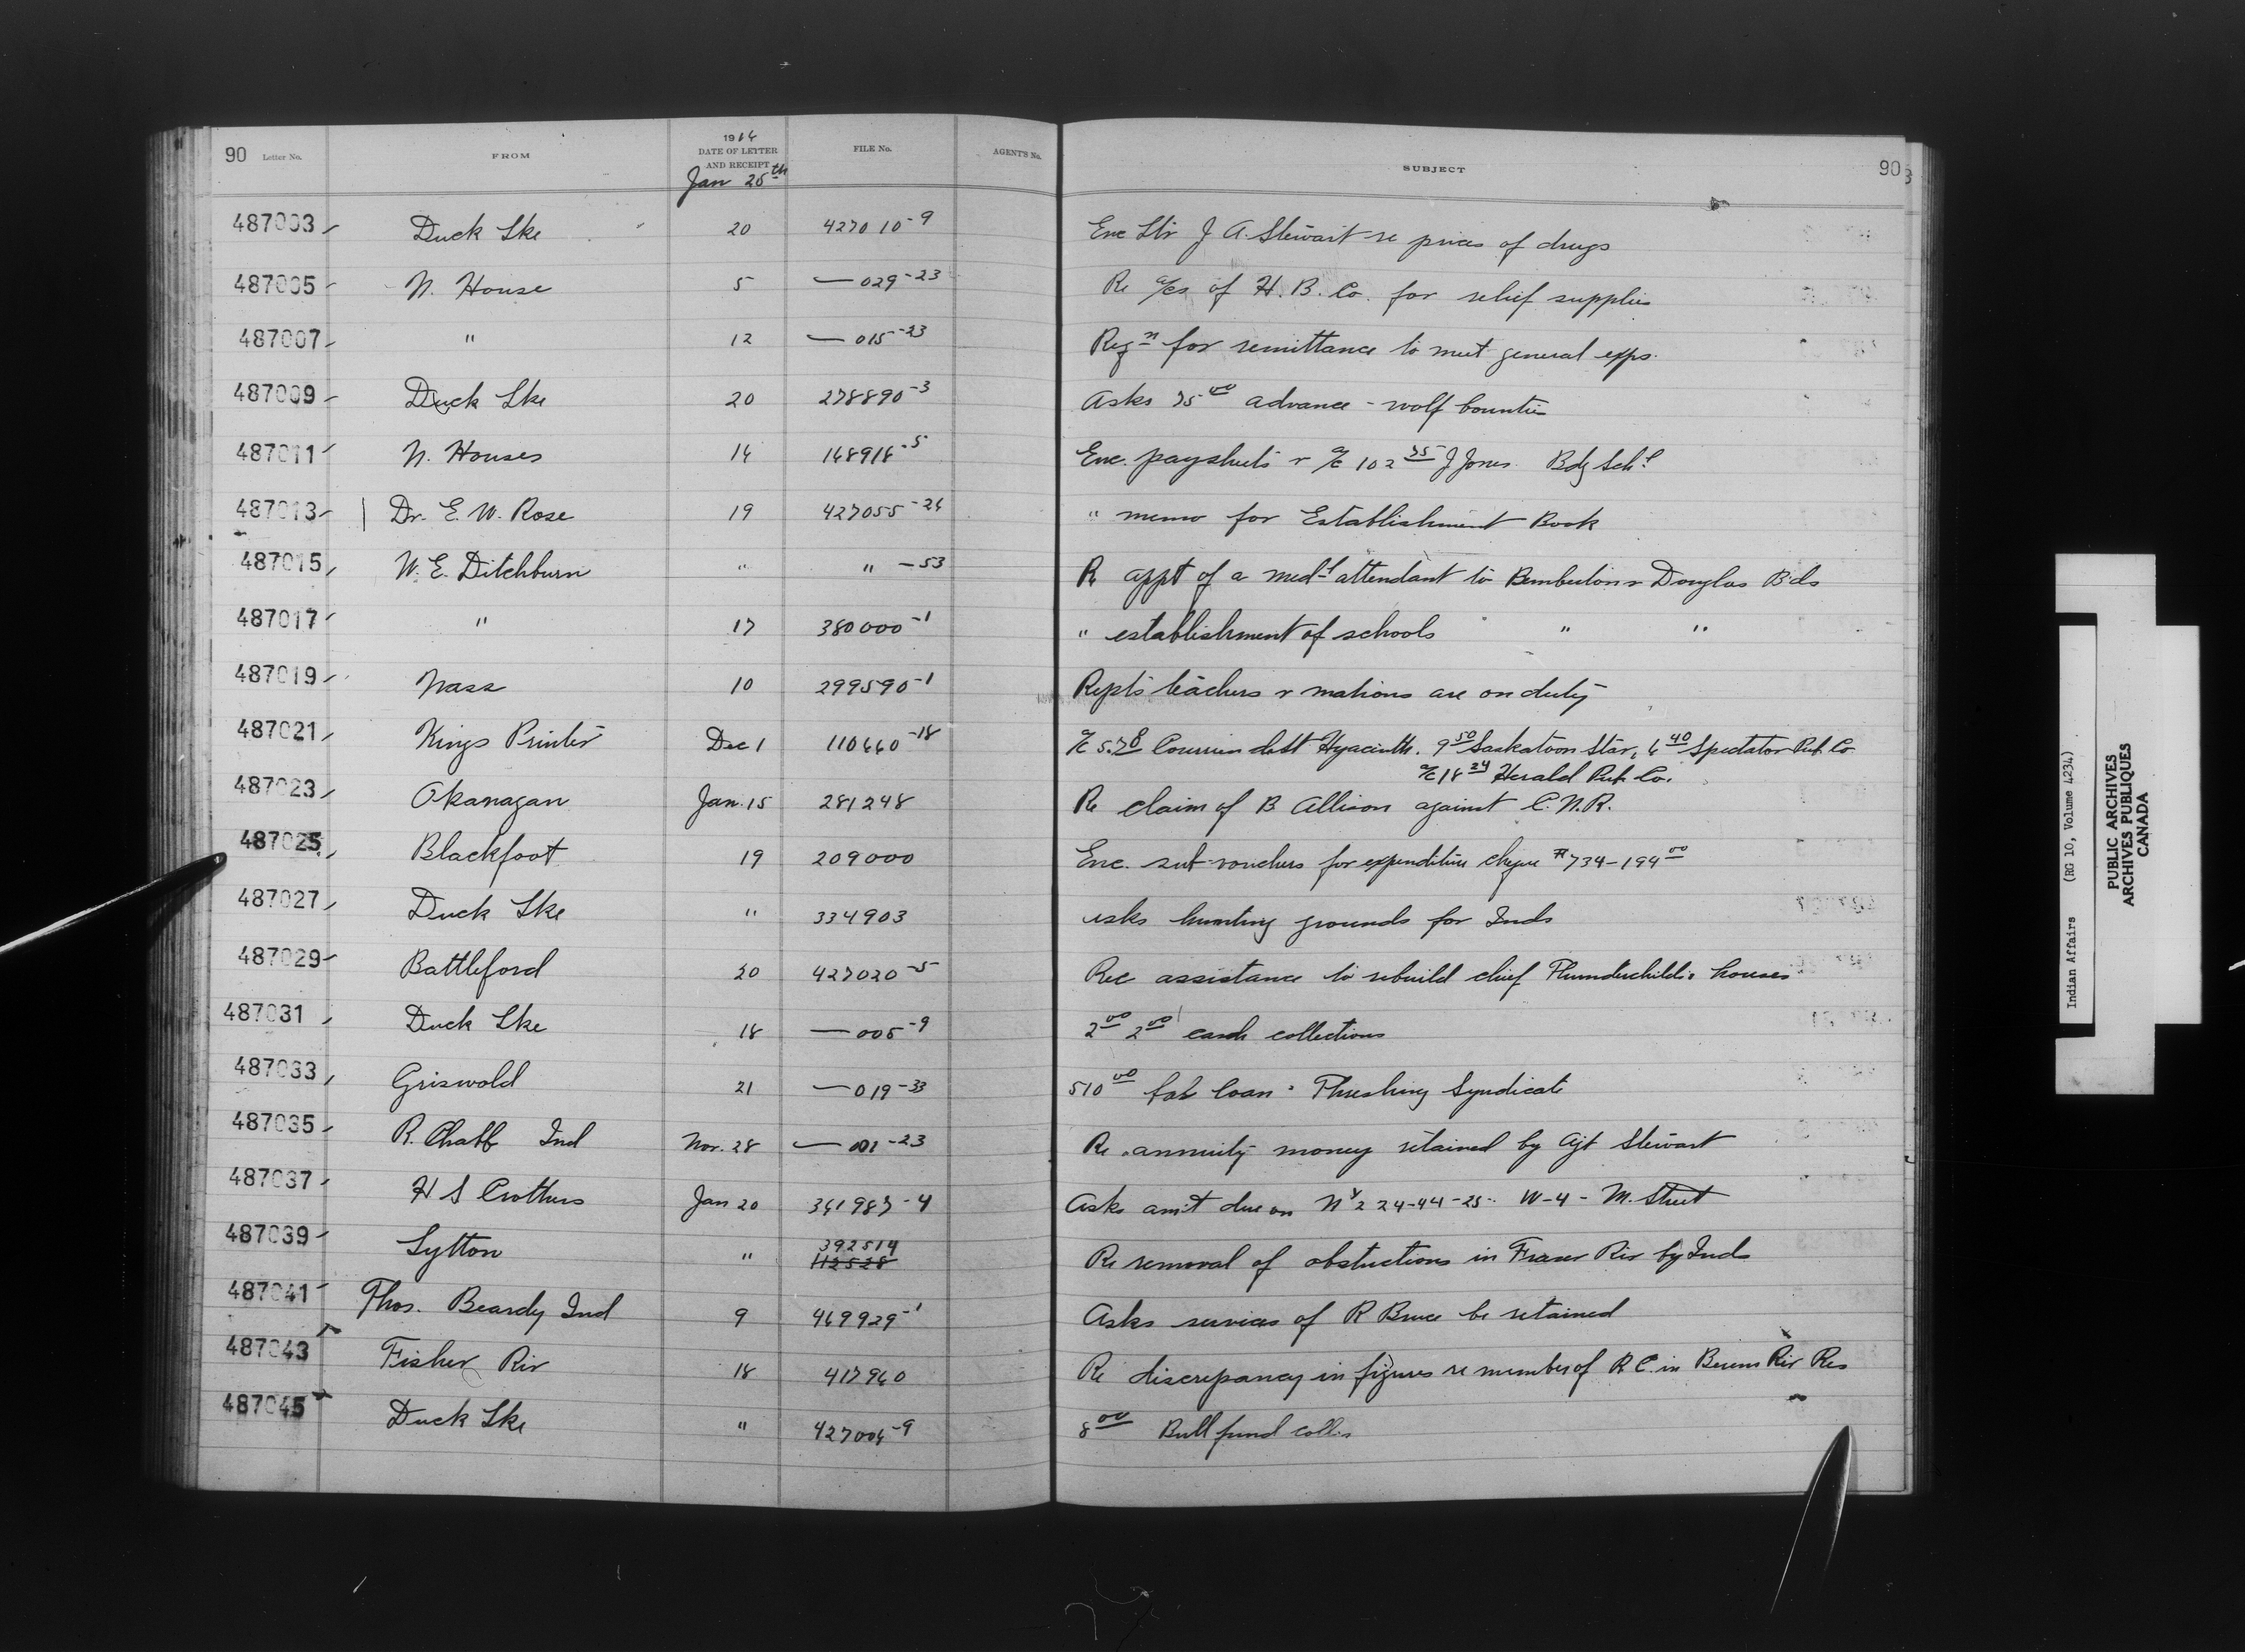 90 Letter No. FROM 1914 DATE OF LETTER AND RECEIPT FILE No. AGENT'S No. SUBJECT 90
Jan 26th
487003 Duck Lke 20 427010-9 Enc Ltr J A. Stewart re prices of drugs
487005 N. House 5 — 029-23 Re a/cs of H. B. Co. for relief supplies
487007 " 12 — 015-23 Reqn for remittance to meet general exps.
487009 Duck Lke 20 278890-3 Asks 75 00 advance - wolf bounties
487011 N. Houses 14 148914-5 Enc. paysheets & a/c 102 75 J Jones Bdg Schl
487013 Dr. E. W. Rose 19 427055-24 " memo for Establishment Book
487015 W. E. Ditchburn " " - 53 Re appt of a medl attendant to Pemberton & Douglas Bds
487017 " 17 380000-1 " establishment of schools " "
487019 Nass 10 299590-1 Repts teachers & matrons are on duty
487021 Kings Printer Dec 1 110660-18 a/c 5.78 Courrier de St Hyacinth. 9 50 Saskatoon Star, 6 40 Spectator Pub Co
a/c 18 24 Herald Pub. Co.
487023 Okanagan Jan. 15 281248 Re claim of B Allison against C. N. R.
487025 Blackfoot 19 209000 Enc. sub-vouchers for expenditure cheque # 734 - 194 00
487027 Duck Lke " 334903 asks hunting grounds for Inds
487029 Battleford 20 427020-5 Rec assistance to rebuild chief Thunderchild's houses
487031 Duck Lke 18 — 005-9 2 00 2 00 cash collections
487033 Griswold 21 — 019-33 510 00 loan Threshing Syndicate
487035 R. Chaff Ind Nov. 28 — 001-23 Re annuity money retained by Agt Stewart
487037 H S Crothers Jan 20 361987-4 Asks amt due on N 1/2 24-44-25 W-4 - M. Street
487039 Lytton " 392514 Re removal of obstructions in Fraser Riv by Inds
112528
487041 Thos. Beardy Ind 9 469929-1 Asks services of R Bruce be retained
487043 Fisher Riv 18 417960 Re discrepancy in figures re number of R C. in Berens Riv Res
487045 Duck Lke " 427004-9 8 00 Bull fund colls
Indian Affairs (RG 10, Volume 4234)
PUBLIC ARCHIVES
ARCHIVES PUBLIQUES
CANADA